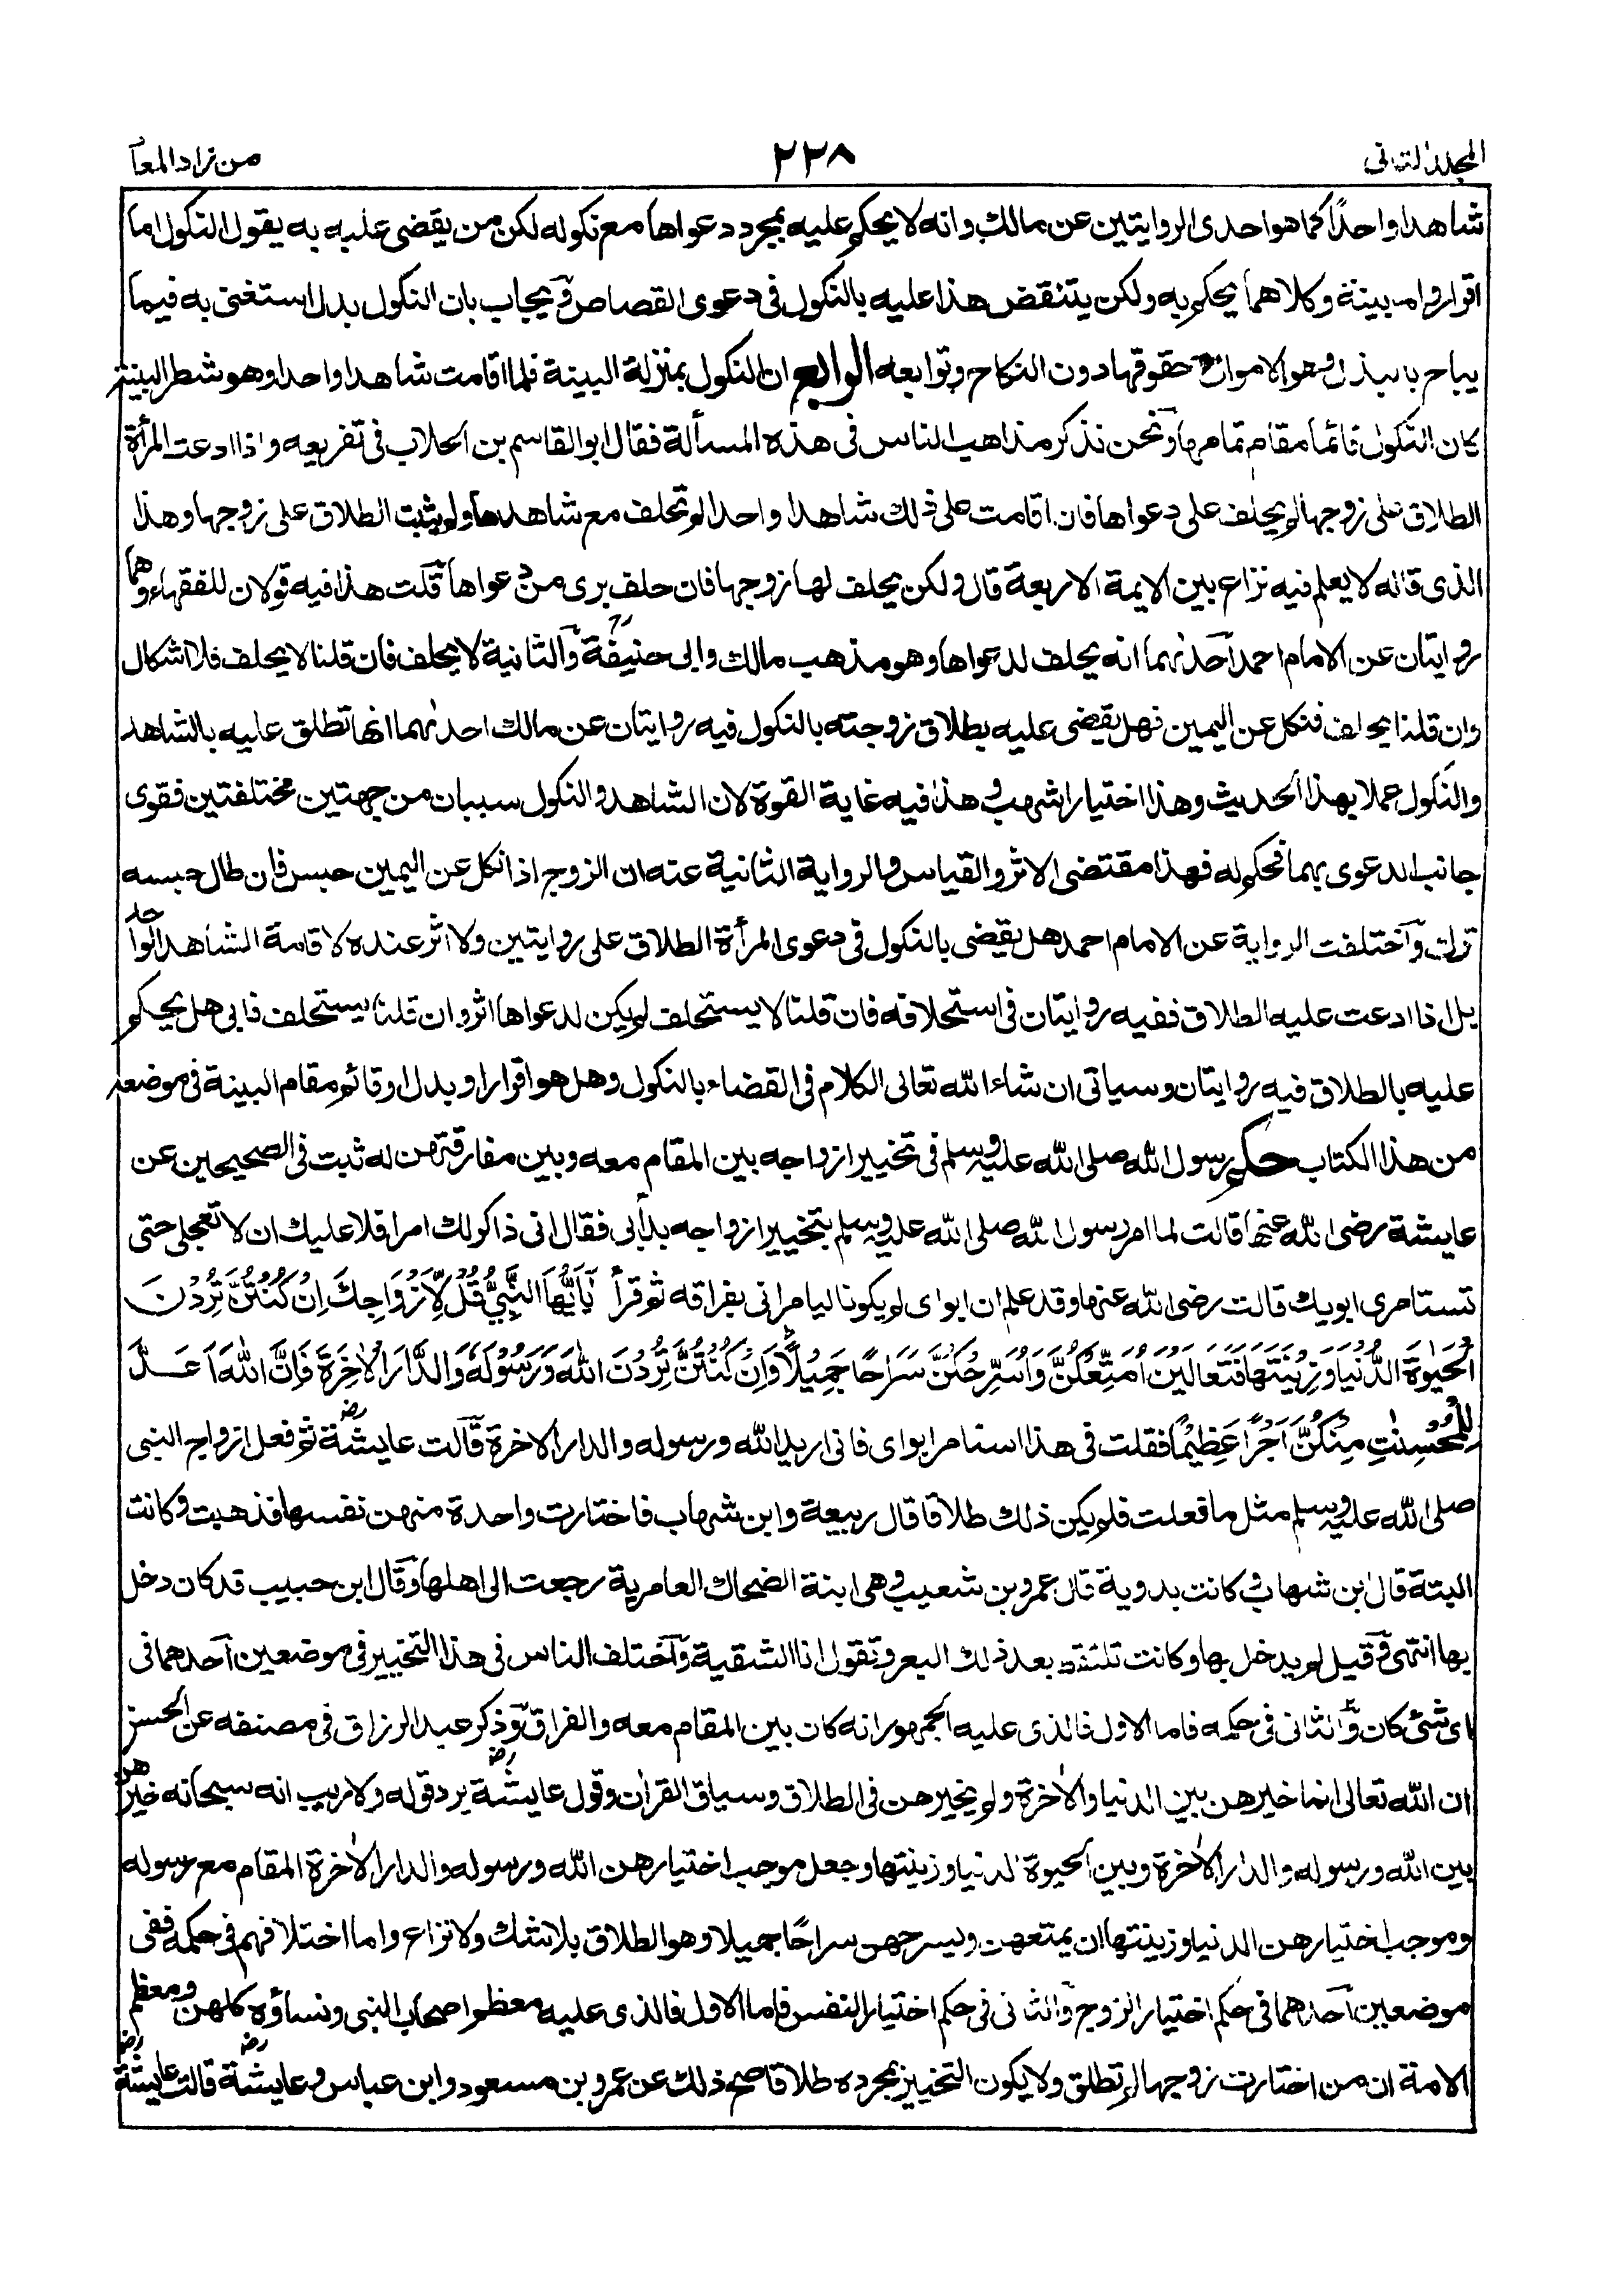 المجلد الثانى ٢٣٨ من زاد المعا
شاهدا واحدًا كما هو احدى الروايتين عن مالك وانه لا يحكم عليه بمجرد دعواها مع نكوله لكن من يقضى عليه به يقول النكول اما
اقرار واما بينة وكلاهما يحكم به ولكن ينتقض هذا عليه بالنكول فى دعوى القصاص ويجاب بان النكول بدل استغنى به فيما
يباح بالبذل وهو الاموال وحقوقها دون النكاح وتوابعه الرابع ان النكول بمنزلة البينة فلما اقامت شاهدا واحدا وهو شطر البينة
كان النكول قائما مقام تمامها ونحن نذكر مذاهب الناس فى هذه المسألة فقال ابو القاسم بن الجلاب فى تفريعه واذا ادعت المرأة
الطلاق على زوجها لم يحلف على دعواها فان اقامت على ذلك شاهدا واحدا لم تحلف مع شاهدها ولم يثبت الطلاق على زوجها وهذا
الذى قاله لا يعلم فيه نزاع بين الايمة الاربعة قال ولكن يحلف لها زوجها فان حلف برى من دعواها قلت هذا فيه قولان للفقهاء وهما
روايتان عن الامام احمد احدٰهما انه يحلف لدعواها وهو مذهب مالك وابى حنيفة والثانية لا يحلف فان قلنا لا يحلف فلا اشكال
وان قلنا يحلف فنكل عن اليمين فهل يقضى عليه بطلاق زوجته بالنكول فيه روايتان عن مالك احدٰهما انها تطلق عليه بالشاهد
والنكول عملا بهذا الحديث وهذا اختيار اشهب وهذا فيه غاية القوة لان الشاهد والنكول سببان من جهتين مختلفتين فقوى
جانب الدعوى بهما فحكم له فهذا مقتضى الاثر والقياس والرواية الثانية عنه ان الزوج اذا نكل عن اليمين حبس فان طال حبسه
ترك واختلفت الرواية عن الامام احمد هل يقضى بالنكول فى دعوى المرأة الطلاق على روايتين ولا اثر عنده لاقامة الشاهد الواحد
بل اذا ادعت عليه الطلاق ففيه روايتان فى استحلافه فان قلنا لا يستحلف لم يكن لدعواها اثر وان قلنا يستحلف فابى هل يحكم
عليه بالطلاق فيه روايتان وسياتى ان شاء الله تعالى الكلام فى القضاء بالنكول وهل هو اقرار او بدل او قائم مقام البينة فى موضعه
من هذا الكتاب حكم رسول الله صلى الله عليه وسلم فى تخيير ازواجه بين المقام معه وبين مفارقتهن له ثبت فى الصحيحين عن
عايشة رضى الله عنها قالت لما امر رسول الله صلى الله عليه وسلم بتخيير ازواجه بدأبى فقال انى ذاكر لك امرا فلا عليك ان لا تعجلى حتى
تستامرى ابويك قالت رضى الله عنها وقد علم ان ابواى لم يكونا ليامرانى بفراقه ثم قرأ يَٰٓاَيُّهَا النَّبِيُّ قُلْ لِّاَزْوَاجِكَ اِنْ كُنْتُنَّ تُرِدْنَ
الْحَيٰوةَ الدُّنْيَا وَزِيْنَتَهَا فَتَعَالَيْنَ اُمَتِّعْكُنَّ وَاُسَرِّحْكُنَّ سَرَاحًا جَمِيْلًا وَاِنْ كُنْتُنَّ تُرِدْنَ اللّٰهَ وَرَسُوْلَهٗ وَالدَّارَ الْاٰخِرَةَ فَاِنَّ اللّٰهَ اَعَدَّ
لِلْمُحْسِنٰتِ مِنْكُنَّ اَجْرًا عَظِيْمًا فقلت فى هذا استامر ابواى فانى اريد الله ورسوله والدار الاخرة قالت عايشة رض ثم فعل ازواج النبى
صلى الله عليه وسلم مثل ما فعلت فلم يكن ذلك طلاقا قال ربيعة وابن شهاب فاختارت واحدة منهن نفسها فذهبت وكانت
البتة قال ابن شهاب وكانت بدوية قال عمرو بن شعيب وهى ابنة الضحاك العامرية رجعت الى اهلها وقال ابن حبيب قد كان دخل
بها انتهى وقيل لم يدخل بها وكانت تلتقط بعد ذلك البعر وتقول انا الشقية واختلف الناس فى هذا التخيير فى موضعين احدهما فى
اى شئ كان والثانى فى حكمه فاما الاول فالذى عليه الجمهور انه كان بين المقام معه والفراق وذكر عبد الرزاق فى مصنفه عن الحسن
ان الله تعالى انما خيرهن بين الدنيا والاٰخرة ولم يخيرهن فى الطلاق وسياق القراٰن وقول عايشة رض يرد قوله ولا ريب انه سبحانه خيرهن
بين الله ورسوله والدار الاٰخرة وبين الحيوة الدنيا وزينتها وجعل موجب اختيارهن الله ورسوله والدار الاٰخرة المقام مع رسوله
وموجب اختيارهن الدنيا وزينتها ان يمتعهن ويسرحهن سراحًا جميلا وهو الطلاق بلا شك ولا نزاع واما اختلافهم فى حكمه ففى
موضعين احدهما فى حكم اختيار الزوج والثانى فى حكم اختيار النفس فاما الاول فالذى عليه معظم اصحاب النبى ونساؤه كلهن ومعظم
الامة ان من اختارت زوجها لم تطلق ولا يكون التخيير بمجرده طلاقا صح ذلك عن عمر وبن مسعود وابن عباس وعايشة رض قالت عايشة رض